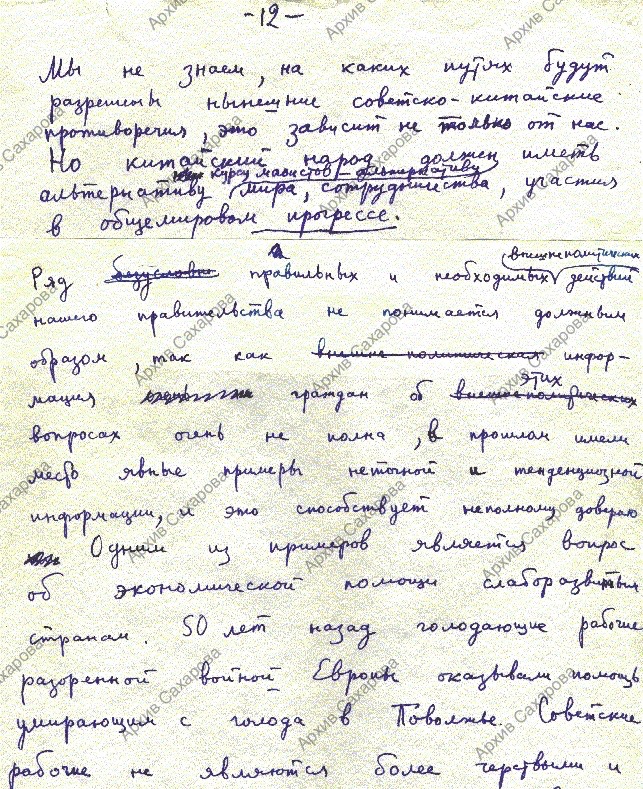 -12-
Мы не знаем, на каких путях будут
разрешены нынешние советско-китайские
противоречия, это зависит не только от нас.
Но китайский народ должен иметь
курсу маоистов – альтернативу
альтернативу мира, сотрудничества, участия
в общемировом прогрессе.
Ряд безусловно правильных и необходимых внешнеполитических действий
нашего правительства не понимается должным
образом, так как внешне-политическая инфор-
мация граждан об внешнеполитических этих
вопросах очень не полна, в прошлом имели
место явные примеры неточной и тенденциозной
информации, и это способствует неполному доверию
Одним из примеров является вопрос
об экономической помощи слаборазвитым
странам. 50 лет назад голодающие рабочие
разоренной войной Европы оказывали помощь
умирающим с голода в Поволжье. Советские
рабочие не являются более черствыми и
Архив Сахарова